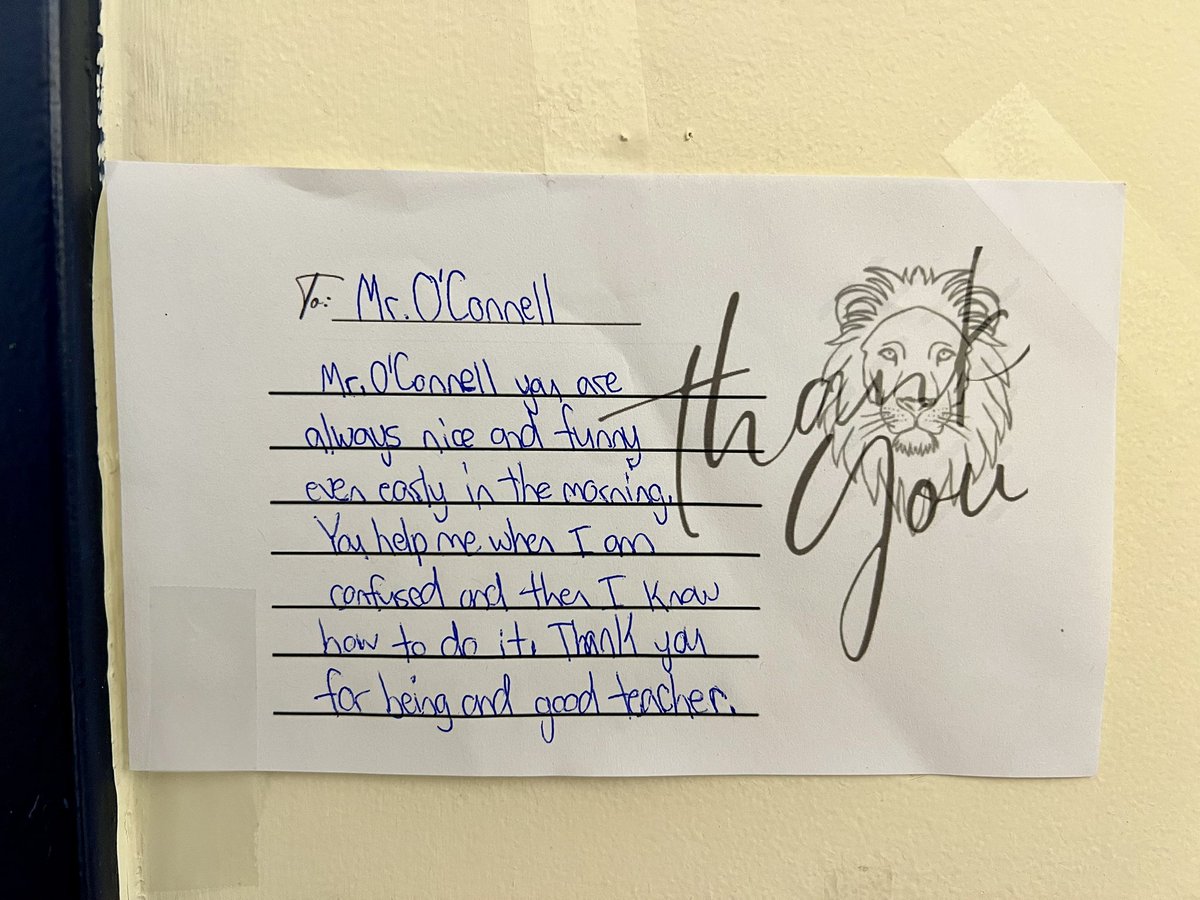 To: Mr. O'Connell
Mr. O'Connell you are
always nice and funny
even early in the morning.
You help me when I am
confused and then I know
how to do it. Thank you
for being and good teacher.
thank
you